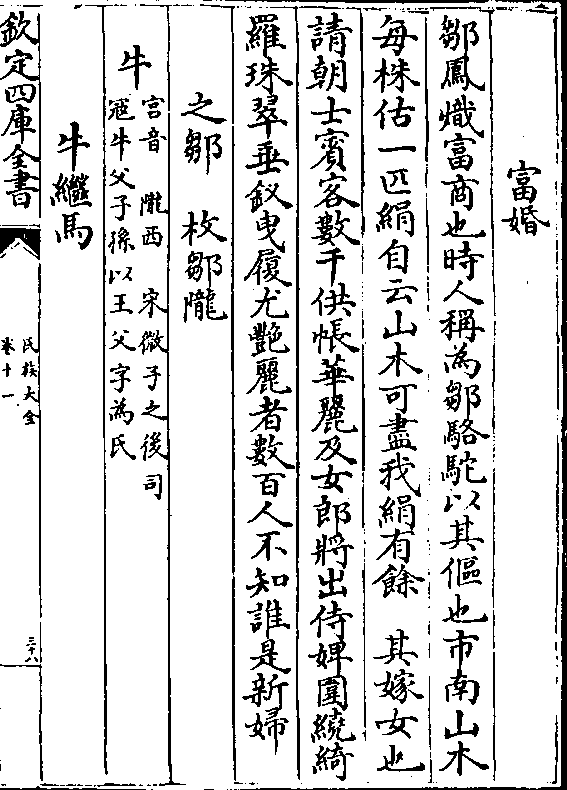 富婚
鄒鳳熾富商也時人稱為鄒駱駝以其傴也市南山木
每株估一匹絹自云山木可盡我絹有餘　其嫁女也
請朝士賓客數千供帳華麗及女郎將出侍婢圍繞綺
羅珠翠垂釵曳履尤艷麗者數百人不知誰是新婦
之鄒　枚鄒隴
牛
宫音　隴西　宋微子之後司
冦牛父子孫以王父字為氏
牛繼馬
欽定四庫全書
氏族大全
卷十一
三十八